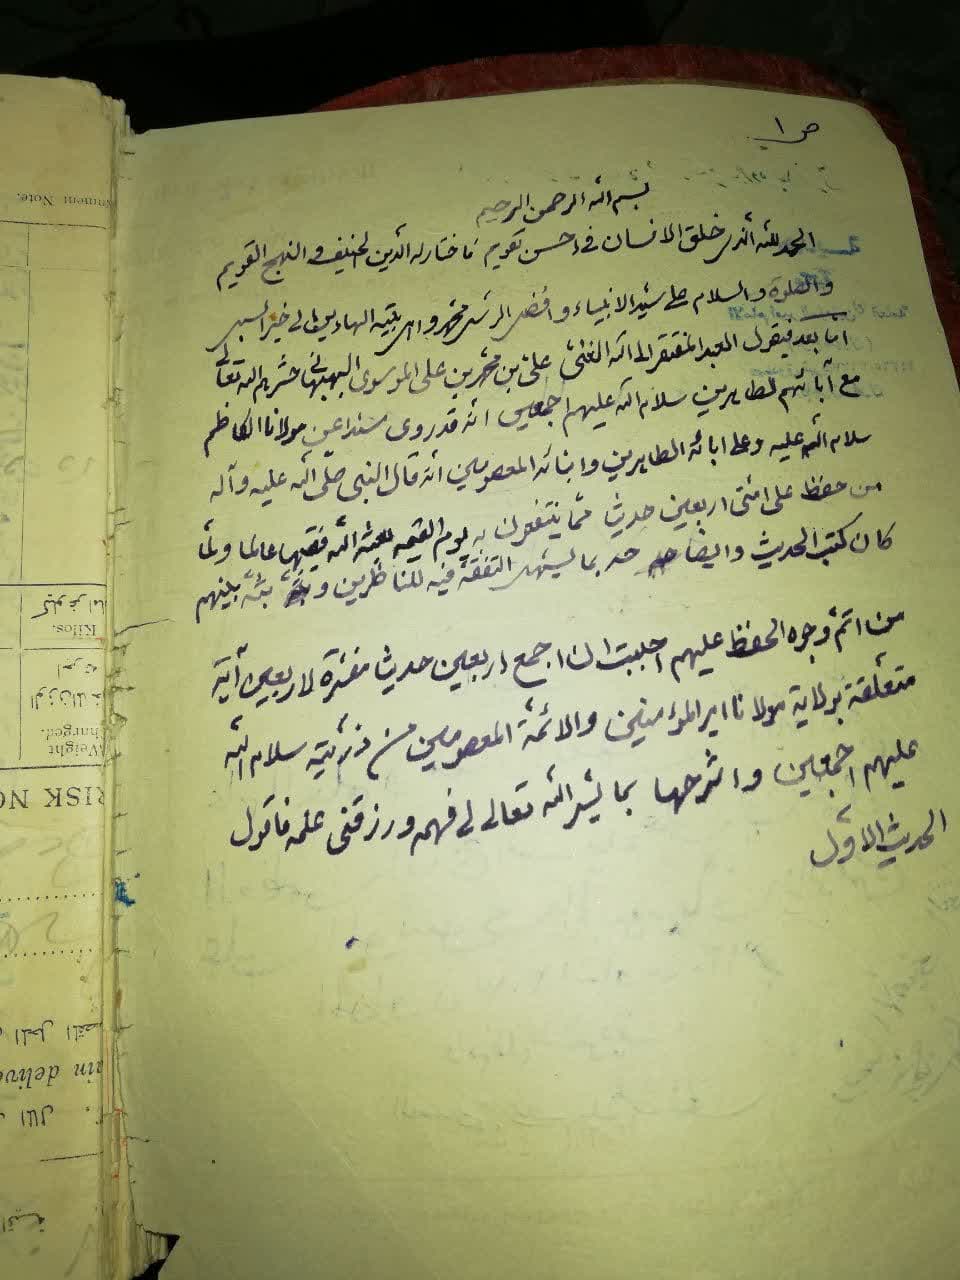 ص ١
بسم الله الرحمن الرحيم
الحمد لله الذي خلق الانسان في احسن تقويم فاختار له الدين الحنيف والنهج القويم
والصلوة والسلام على سيد الانبياء وافضل الرسل محمد واهل بيته الهادين الى خير السبل
اما بعد فيقول العبد المفتقر الى الله الغني علي بن محمد بن علي الموسوي البهبهاني حشرهم الله تعالى
مع آبائهم الطاهرين سلام الله عليهم اجمعين انه قد روى مسندا عن مولانا الكاظم
سلام الله عليه وعلى ابائه الطاهرين وابنائه المعصومين انه قال النبي صلى الله عليه وآله
من حفظ على امتي اربعين حديث مما ينتفعون به يوم القيمه بعثه الله فقيها عالما ولما
كان كتب الحديث وايضاحه بما يسهل التفقه فيه للناظرين وبثه بينهم
من اتم وجوه الحفظ عليهم احببت ان اجمع اربعين حديثا مفسرة لاربعين آية
متعلقة بولاية مولانا امير المؤمنين والائمة المعصومين من ذريته سلام الله
عليهم اجمعين واشرحها بما يسر الله تعالى لي فهمه ورزقني علمه فاقول
الحديث الاول
nment Note.
Kilos.
Weight
harged.
RISK NO
ain delive